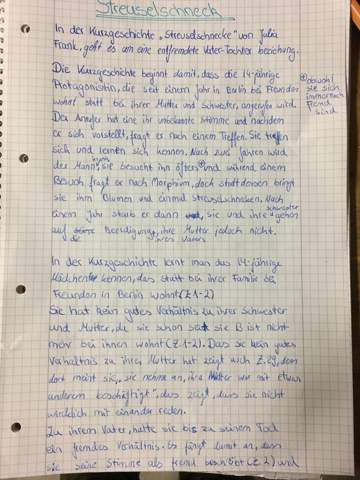 Streuselschneck
In der Kurzgeschichte „Streuselschnecke" von Julia
Frank, geht es um eine entfremdete Vater-Tochter beziehung.
Die Kurzgeschichte beginnt damit, dass die 14-jährige
Protagonistin, die seit einem Jahr in Berlin bei Freunden
wohnt statt bei ihrer Mutter und Schwester, angerufen wird.
Der Anrufer hat eine ihr unbekannte Stimme und nachdem
er sich vorstellt, fragt er nach einem Treffen. Sie treffen
sich und lernen sich kennen. Nach zwei Jahren wird
der Mann krank, sie besucht ihn öfters und während einem
obwohl
sie sich
immernoch
fremd
sind
Besuch fragt er nach Morphium, doch stattdessen bringt
sie ihm Blumen und einmal Streuselschnecken. Nach
einem Jahr starb er dann, sie und ihre Schwester gehen
auf die Beerdigung ihres Vaters, ihre Mutter jedoch nicht.
In der Kurzgeschichte lernt man das 14-jährige
Mädchen kennen, das statt bei ihrer Familie bei
Freunden in Berlin wohnt (Z.1-2)
Sie hat kein gutes Verhältnis zu ihrer Schwester
und Mutter, da sie schon seit sie ist nicht
mehr bei ihnen wohnt (Z.1-2). Das sie kein gutes
Verhältnis zu ihrer Mutter hat zeigt sich Z. denn
dort meint sie, sie nehme an, ihre Mutter wär mit etwas
anderem beschäftigt", das zeigt, dass sie nicht
wirklich mit einander reden.
Zu ihrem Vater, hatte sie bis zu seinem Tod
ein fremdes Verhältnis. Es fängt damit an, dass
sie seine Stimme als fremd beschreibt (Z.2) und